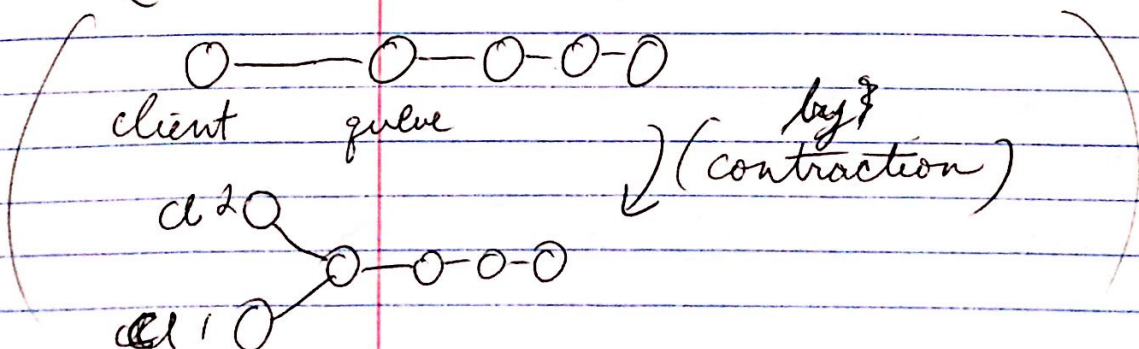 client queue
by
(contraction)
cl 2
cl 1